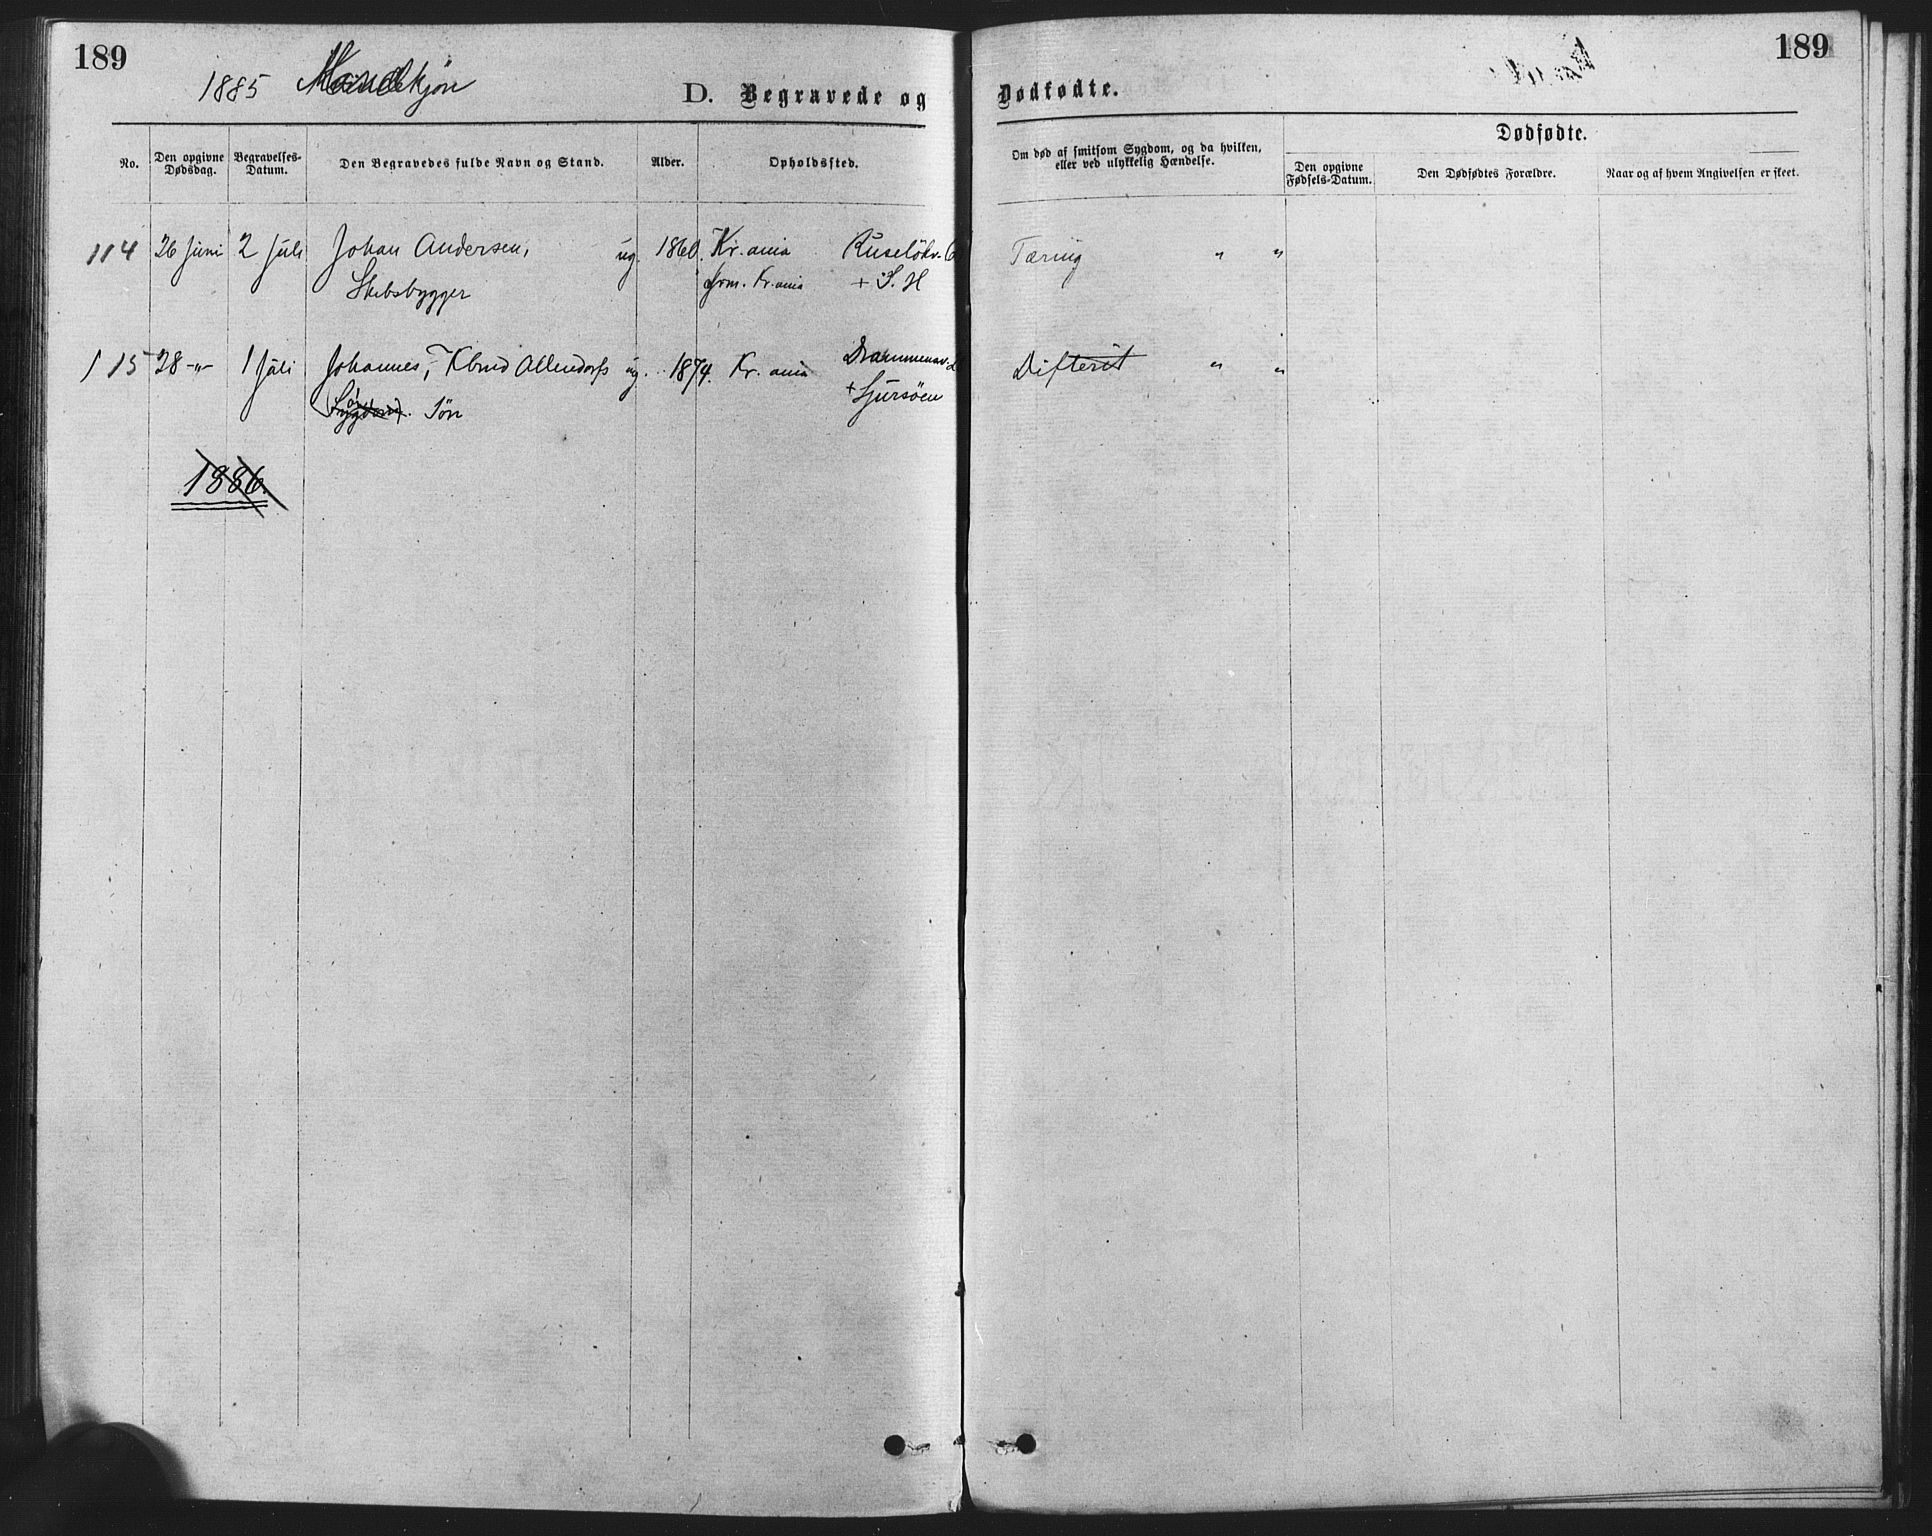 189
189
1885 Mandkjøn
D. Begravede og Dødfødte.
No.
Den opgivne Dødsdag.
Begravelses-Datum.
Den Begravedes fulde Navn og Stand.
Alder.
Opholdssted.
Om død af smitsom Sygdom, og da hvilken,
eller ved ulykkelig Hændelse.
Dødfødte.
Den opgivne Fødsels-Datum.
Den Dødfødtes Forældre.
Naar og af hvem Angivelsen er skeet.
114 26 Juni 2 Juli Johan Andersen, ug. 1860. Kr.ania Ruseløkv. Tæring " "
Skibsbygger Kr.ania + S. H
115 28 -"- 1 Juli Johannes, Kbmd Allendorfs ug. 1874. Kr. ania Drammensv. Difterit " "
Søn + Sjursöen
1886.